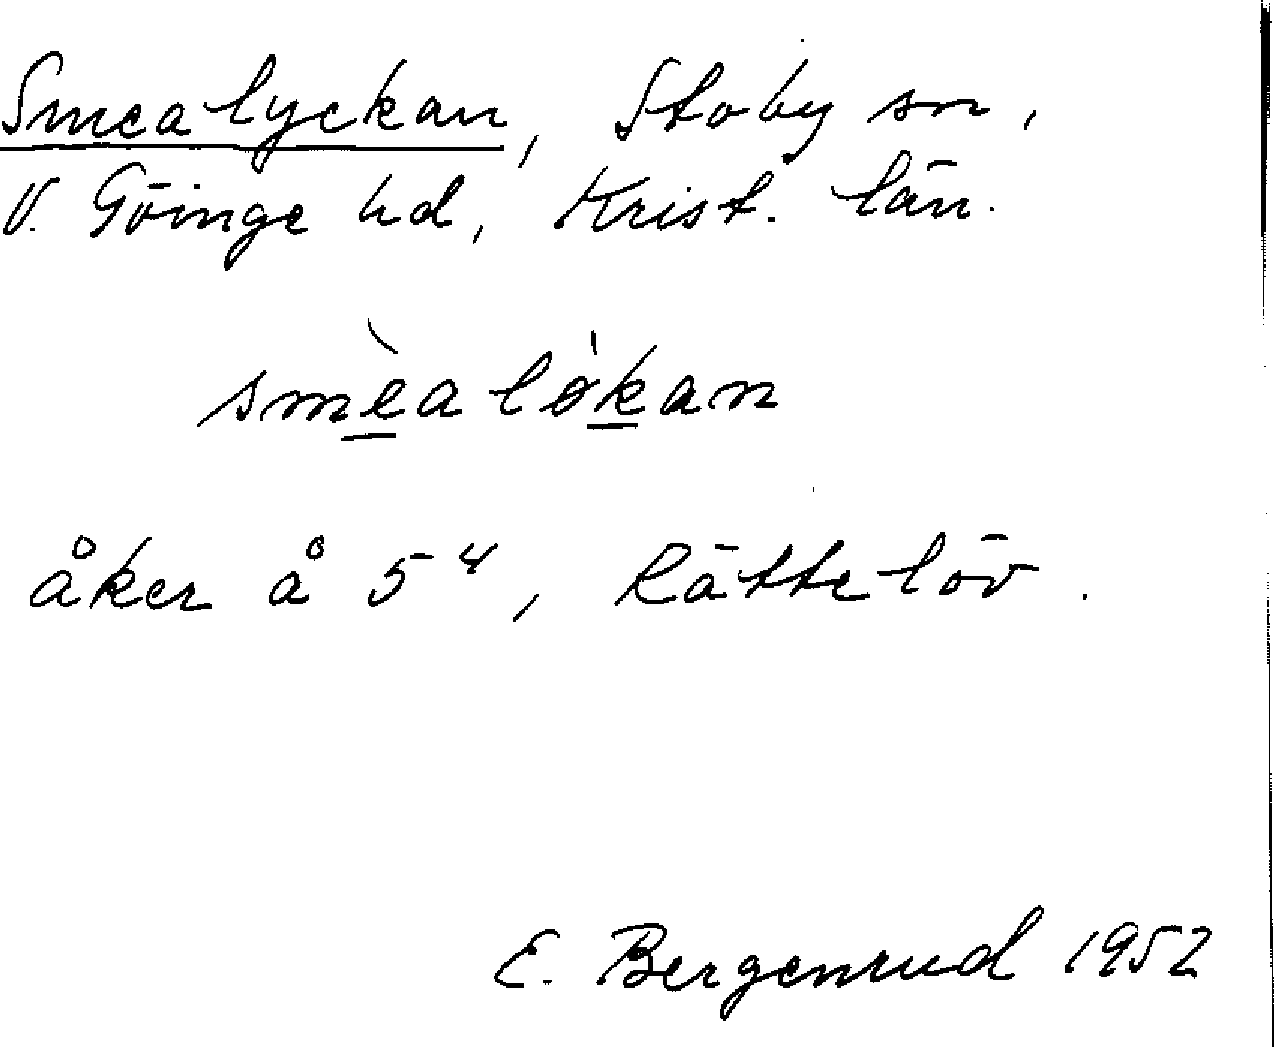 Smealyckan, Stoby sn,
V. Göinge hd, Krist. län.
smèalòkan
åker å 5⁴, Rättelöv.
E. Bergenrud 1952